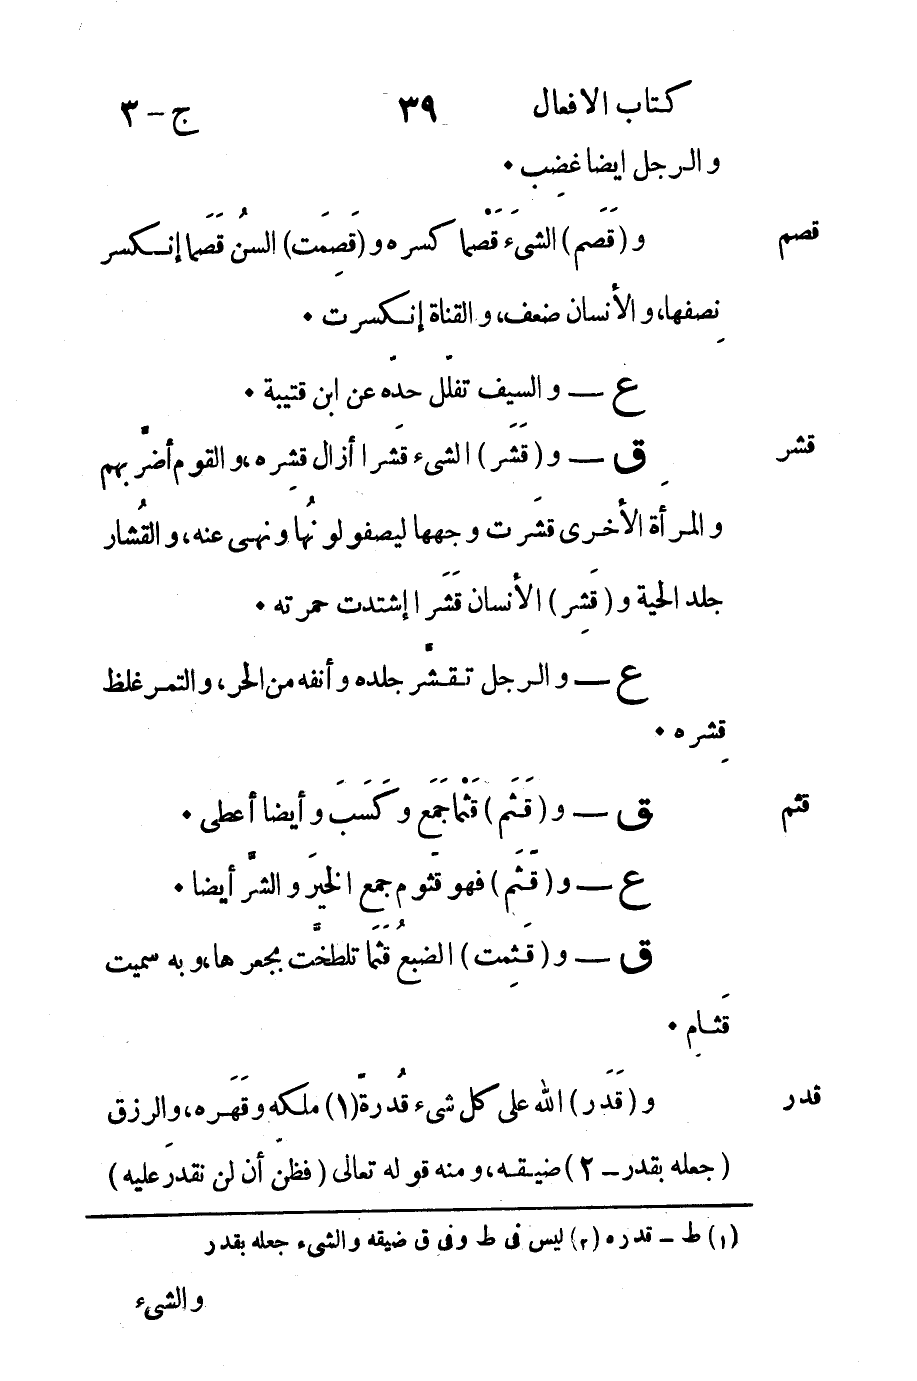 كتاب الافعال ٣٩ ج-٣
والرجل ايضا غضِب ٠
قصم و (قَصَم) الشىء قَصْما كسره و (قَصِمَت) السنُ قَصَما إنكسر
نصفها، و الأنسان ضعف، و القناة إنكسرت ٠
ع — و السيف تفلّل حدّه عن ابن قتيبة ٠
قشر ق — و (قَشَر) الشىء قَشرا أزال قشِره، و القوم أضرّ بهم
و المرأة الأخرى قشَرت وجهها ليصفو لونُها و نهِى عنه، و القُشار
جلد الحية و (قَشِر) الأنسان قَشَرا إشتدت حمرته ٠
ع — و الرجل تقشّر جلده و أنفه من الحر، و التمر غلظ
قِشره ٠
قثم ق — و (قَثَم) قَثْما جَمَع و كَسَبَ و أيضا أعطى ٠
ع — و (قَثّم) فهو قثَوم جمع الخيرَ و الشرّ أيضا ٠
ق — و (قَثِمت) الضبعُ قَثَما تلطخّت بجعرها، و به سميت
قَثامِ ٠
قدر و (قَدَر) الله على كل شىء قُدرةً(١) ملكه و قَهَره، و الرزق
(جعله بقدر - ٢) ضيقه، و منه قوله تعالى (فظنَ أن لن نقدرَ عليه)
(١) ط - قدره (٢) ليس فى ط وفى ق ضيقه و الشىء جعله بقدر
و الشىء